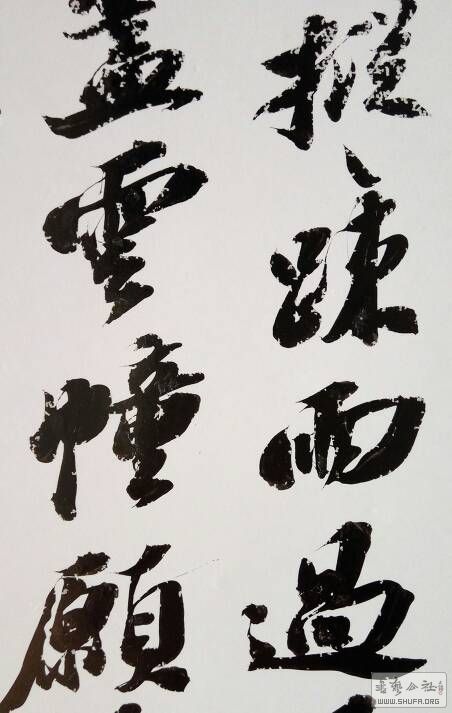 踈雨過
盖雲幢願
書藝公社
WWW.SHUFA.ORG